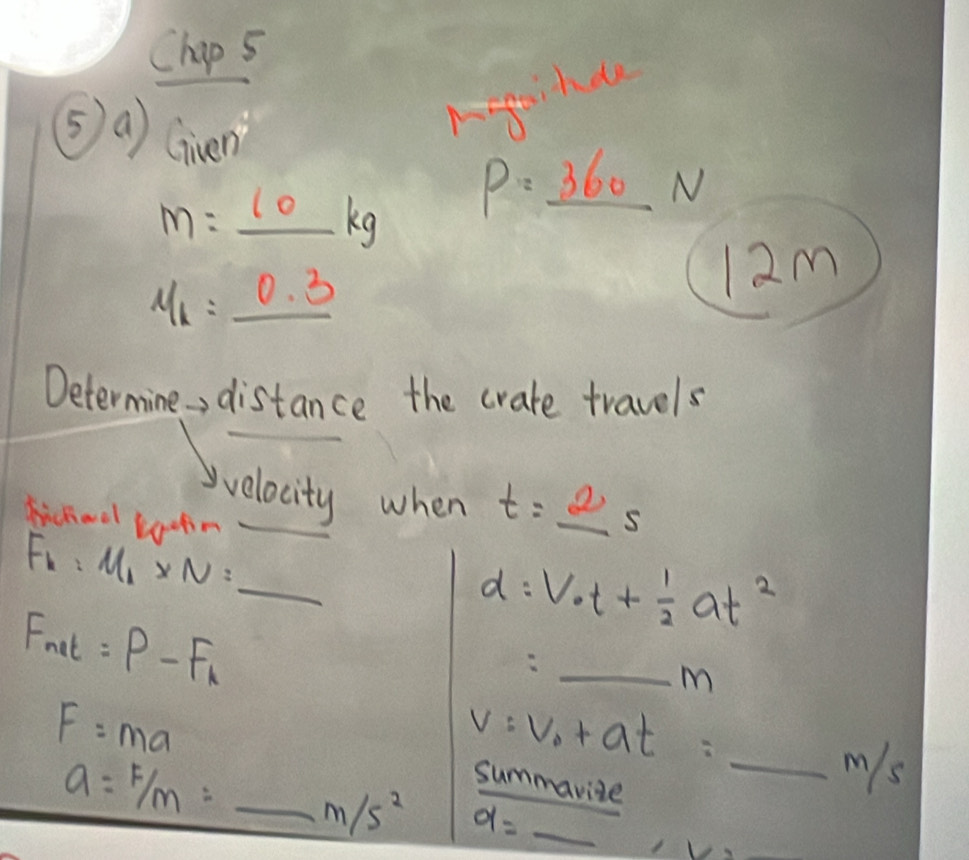 Chap 5
5) a) Given
magnitude
m = 10 kg
P = 360 N
Mk = 0.3
12m
Determine → distance the crate travels
velocity when t = 2 s
Frictional
Fk : Mk × N = ___
Fnet = P - Fk
F = ma
a = F/m = ___ m/s²
d = V₀t + 1/2 at²
= ___ m
V = V₀ + at = ___ m/s
summarize
d = ___ , V =